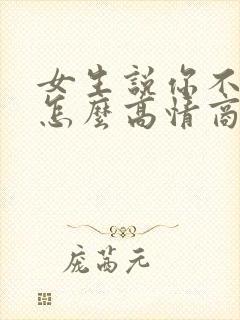 女生說你不
怎麼高情商
庞茜元